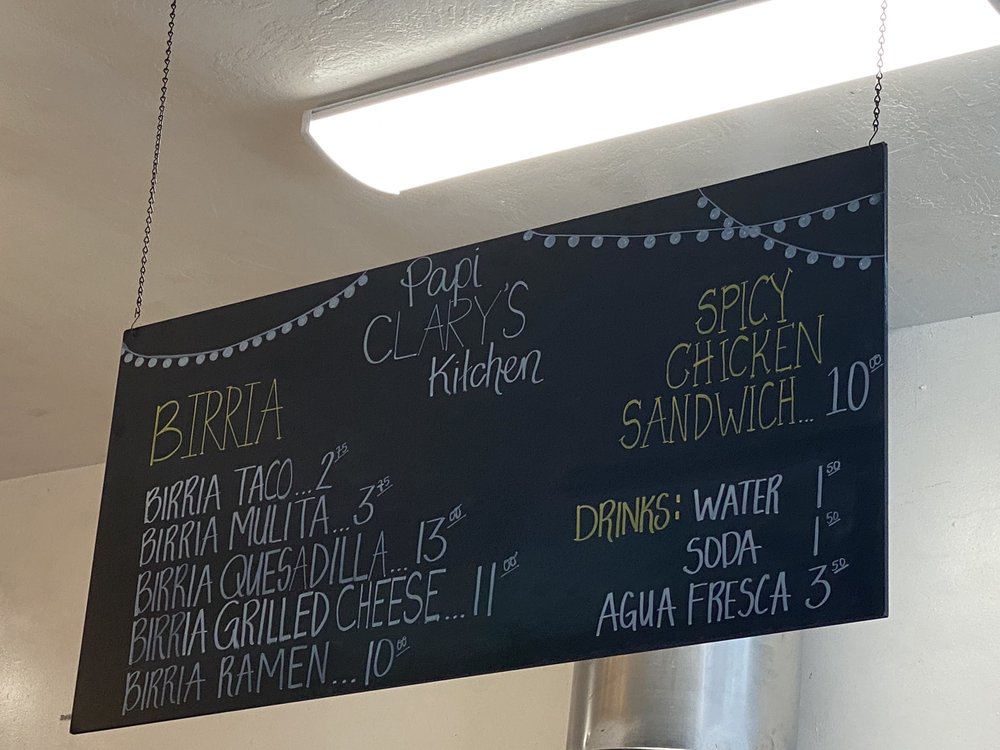 Papi
CLARY'S
Kitchen
BIRRIA
BIRRIA TACO...2 75
BIRRIA MULITA...3 75
BIRRIA QUESADILLA...13 00
BIRRIA GRILLED CHEESE...11 00
BIRRIA RAMEN...10 00
SPICY
CHICKEN
SANDWICH...10 00
DRINKS: WATER 1 50
SODA 1 50
AGUA FRESCA 3 50